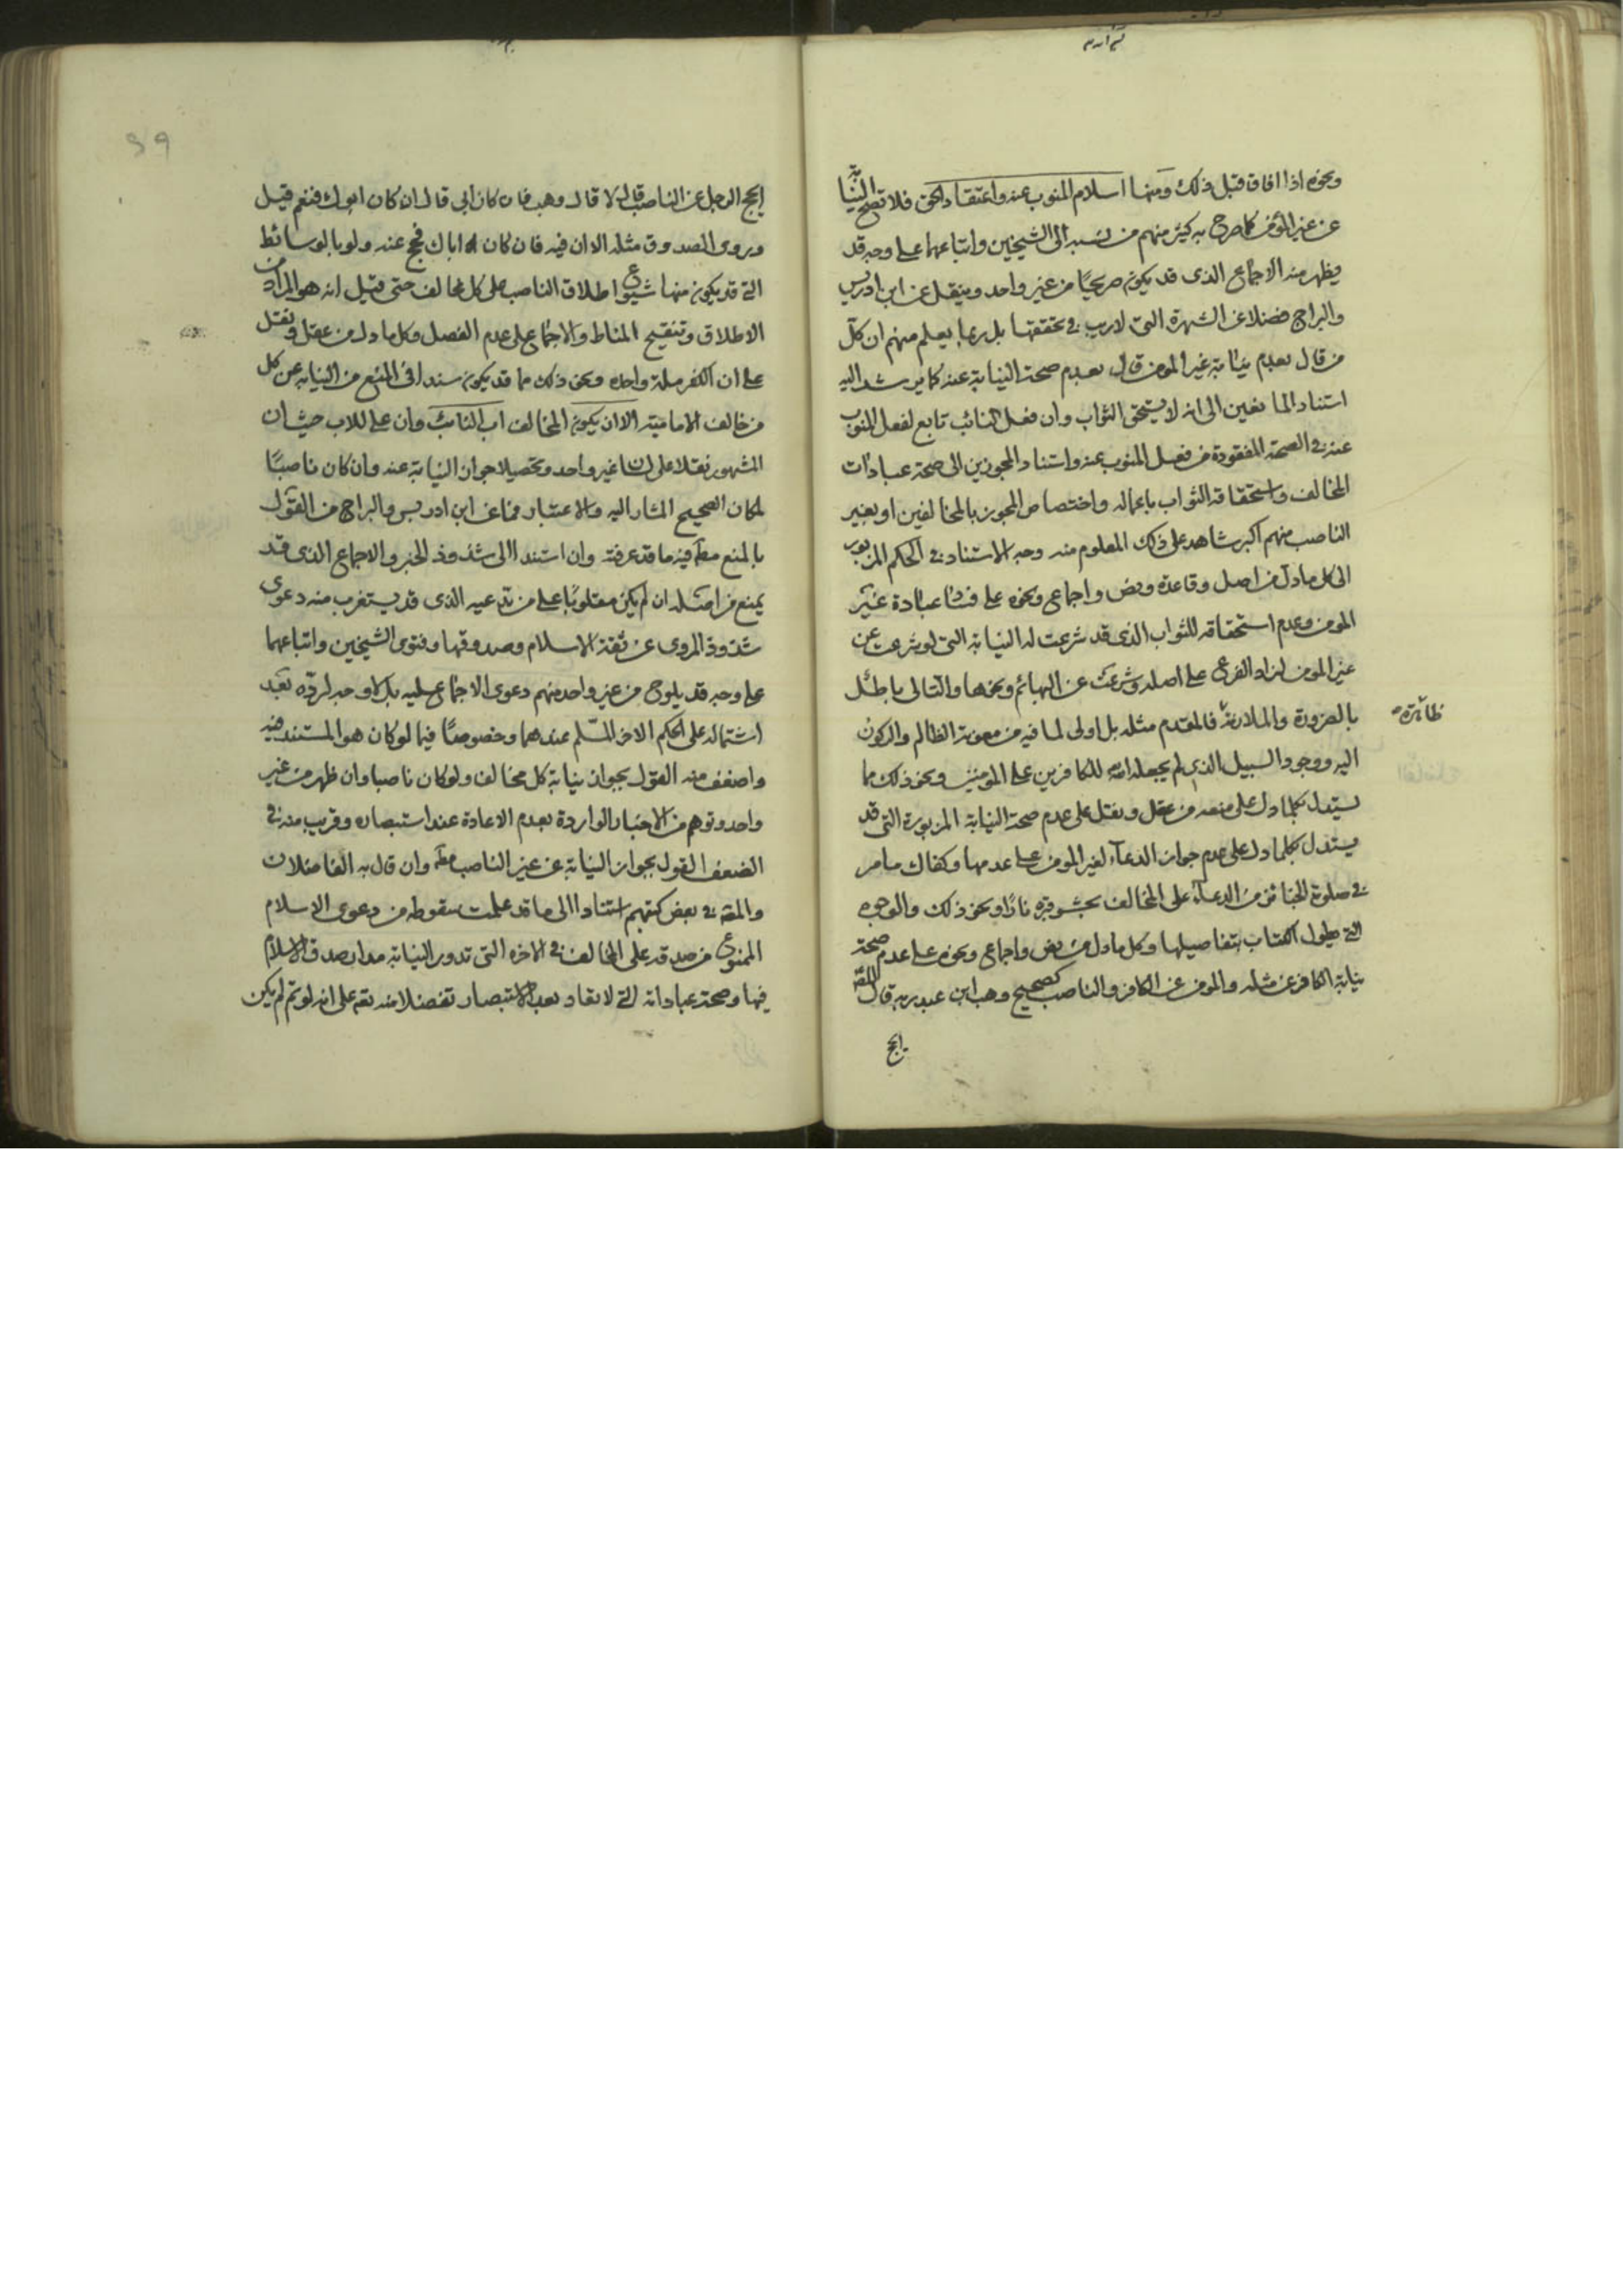 ونحوه اذا افاق قبل ذلك ومنها اسلام المنوب عنه واعتقاد الحق فلا تصح النيابة
عن غير المؤمن كما صرح به كثير منهم من نسبه الى الشيخين واتباعهما على وجه قد
يظهر منه الاجماع الذى قد يكون صريحًا من غير واحد وينقل عن ابن ادريس
والبراج فضلا عن الشهرة التى لا ريب فى تحققها بل ربما يعلم منهم ان كل
من قال بعدم نيابة غير المومن قال بعدم صحة النيابة عنه كما يرشد اليه
استناد المانعين الى انه لا يستحق الثواب وان فعل النائب تابع لفعل المنوب
عنه فى الصحة المفقودة من فعل المنوب عنه واستناد المجوزين الى صحة عبادات
المخالف واستحقاقه الثواب باعماله واختصاص المجوز بالمخالفين او بغير
الناصب منهم اكبر شاهد على ذلك المعلوم منه وجه الاستناد فى الحكم المزبور
الى كل ما دل من اصل وقاعدة ونص واجماع ونحوه على فساد عبادة غير
المومن وعدم استحقاقه للثواب الذى قد شرعت له النيابة التى لو شرعت عن
غير المومن لزاد الفرع على اصله وشرعت عن البهائم ونحوها والتالى باطل
بالضرورة والملازمة ظاهرة فالمقدم مثله بل اولى لما فيه من معونة الظالم والركون
اليه ووجود السبيل الذى لم يجعله الله للكافرين على المومنين ونحو ذلك مما
يستدل بكلما دل على منعه من عقل ونقل على عدم صحة النيابة المزبورة التى قد
يستدل بكلما دل على عدم جواز الدعآء لغير المومن على عدمها وكفاك ما مر
فى صلوة الجنائز من الدعآء على المخالف بحشو قبره نارًا ونحو ذلك والوجوه
التى يطول الكتاب بتفاصيلها وكل ما دل من نص واجماع ونحوه على عدم صحة
نيابة الكافر عن مثله والمومن عن الكافر والناصب كصحيح وهب ابن عبد ربه قال للصّ
ايحج
ايحج الرجل عن الناصب قال لا قال وهب فان كان ابى قال ان كان ابوك فنعم قيل
وروى الصدوق مثله الا ان فيه فان كان اباك فحج عنه ولو بالوسائط
التى قد يكون منها شيوع اطلاق الناصب على كل مخالف حتى قيل انه هو المراد من
الاطلاق وتنقيح المناط والاجماع على عدم الفصل وكل ما دل من عقل ونقل
على ان الكفر ملة واحدة ونحو ذلك مما قد يكون سندا فى المنع من النيابة عن كل
من خالف الامامية الا ان يكون المخالف اب النائب وان على للاب حيث ان
المشهور نقلا على لسان غير واحد وتحصيلا جواز النيابة عنه وان كان ناصبًا
لمكان الصحيح المشار اليه والاعتبار فما عن ابن ادريس والبراج من القول
بالمنع مطلقا فيه ما قد عرفته وان استندا الى شذوذ الخبر والاجماع الذى قد
يمنع من اصله ان لم يكن مقلوبًا على من تدعيه الذى قد يستغرب منه دعوى
شذوذ المروى عن ثقة الاسلام وصدوقها وفتوى الشيخين واتباعهما
على وجه قد يلوح من غير واحد منهم دعوى الاجماع عليه بل لا وجه لرده بعد
اشتماله على الحكم الاخر المسلم عندهما وخصوصًا فيما لو كان هو المستند فيه
واضعف منه القول بجواز نيابة كل مخالف ولو كان ناصبا وان ظهر من غير
واحد وتوهم من الاخبار الواردة بعدم الاعادة عند استبصاره وقريب منه فى
الضعف القول بجواز النيابة عن غير الناصب مطلقا وان قال به الفاضلان
والمقه فى بعض كتبهم استنادا الى ما قد علمت سقوطه من دعوى الاسلام
الممنوع من صدقه على المخالف فى الاخره التى تدور النيابة مدار صدق الاسلام
فيها وصحة عباداته التى لا تعاد بعد الاستبصار تفضلا منه تعه على انه لو تم لم يكن